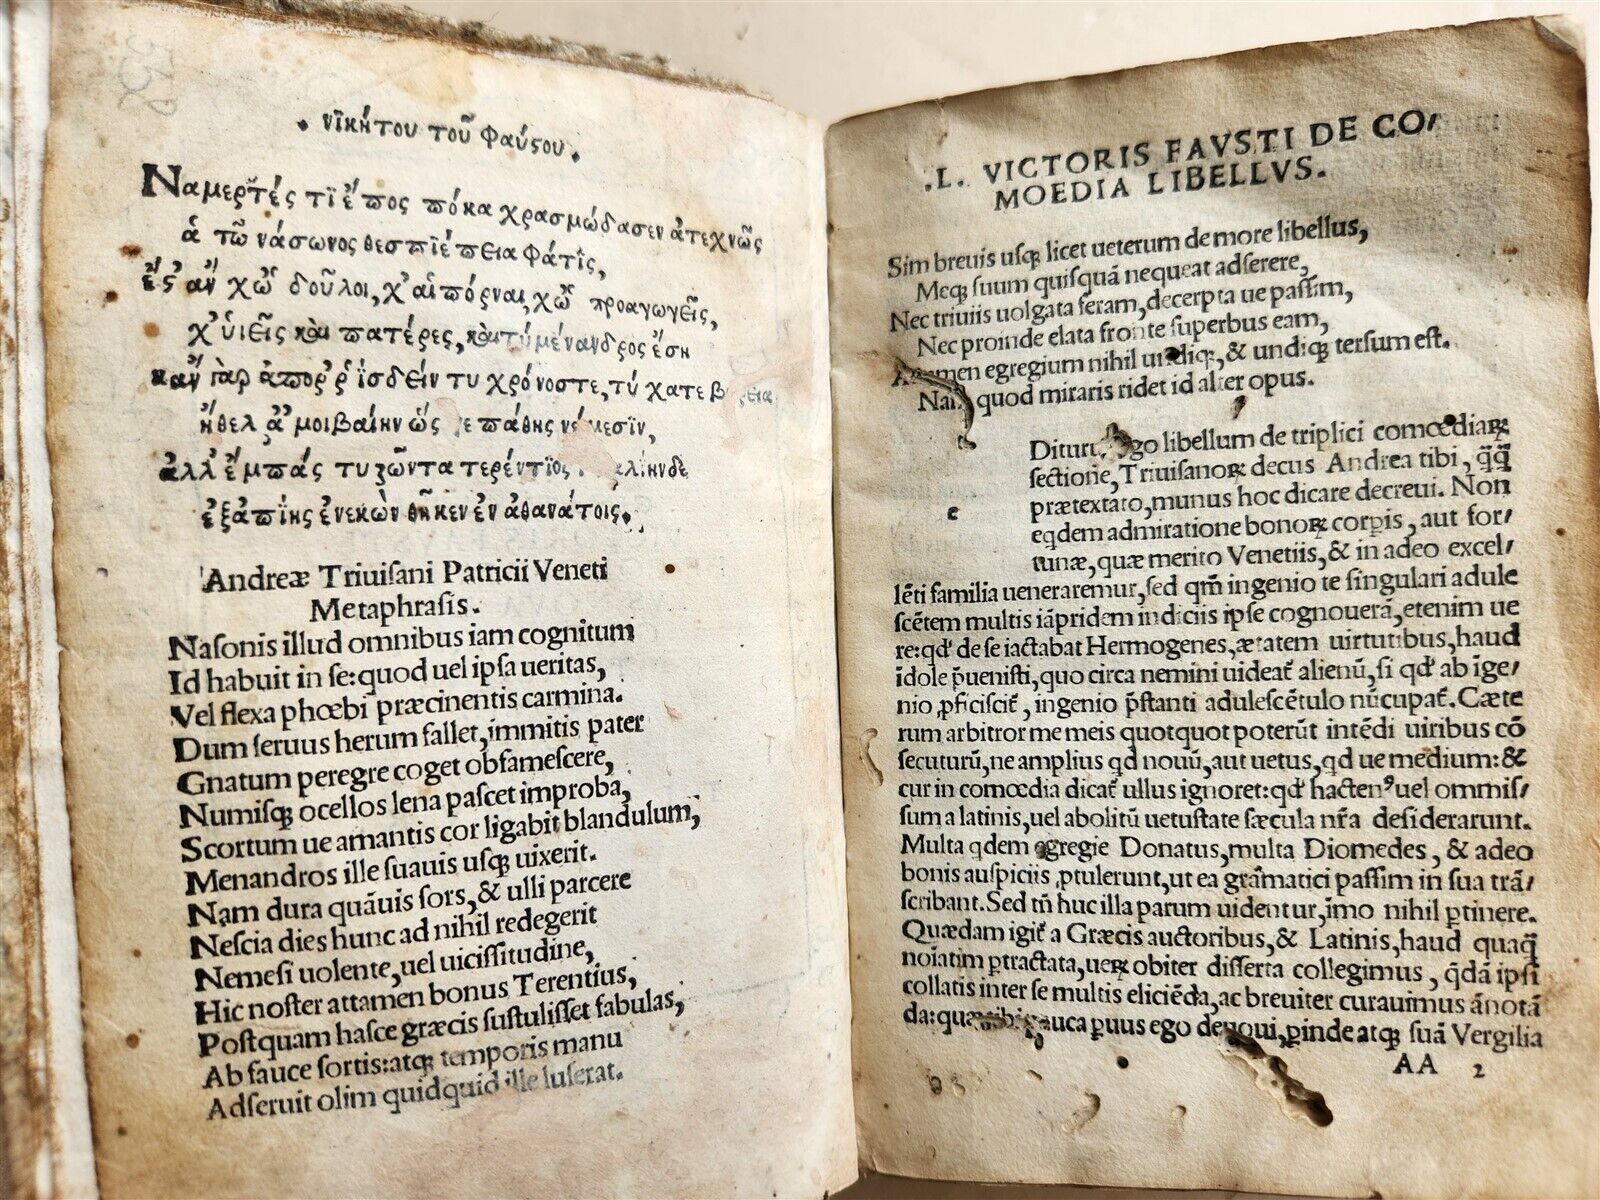 . νϊκήτου τοῦ Φαύςου.
Ναμερτές τϊ ἔπος πόκα χρασμώδασεν ἀτεχνῶς
ἁ τῶ νάσωνος θεσπϊέπεια φάτϊς,
ἔς ἂν χὦ δοῦλοι, χ' αἱ πόρναι, χὦ προαγωγεῖς,
χ' ὑιεῖς καὶ πατέρες, καὶ τὺ μένανδρος ἔση
κἂν γὰρ
ἤθελ ἀμοιβαίην ὥς πάθης νέμεσϊν,
ἀλλ' ἔμπάς τυ ζῶντα τερέντϊος
ἐξαπϊίης ἐνεκὼν θῆκεν ἐν ἀθανάτοις.
Andreæ Triuisani Patricii Veneti
Metaphrasis.
Nasonis illud omnibus iam cognitum
Id habuit in se: quod uel ipsa ueritas,
Vel flexa phœbi præcinentis carmina.
Dum seruus herum fallet, immitis pater
Gnatum peregre coget obsamescere,
Numisq; ocellos lena pascet improba,
Scortum ue amantis cor ligabit blandulum,
Menandros ille suauis usq; uixerit.
Nam dura quãuis sors, & ulli parcere
Nescia dies hunc ad nihil redegerit
Nemesi uolente, uel uicissitudine,
Hic noster attamen bonus Terentius,
Postquam hasce græcis sustulisset fabulas,
Ab fauce sortis: atq; temporis manu
Adseruit olim quidquid ille luserat.
.L. VICTORIS FAVSTI DE CO/
MOEDIA LIBELLVS.
Sim breuis usq; licet ueterum de more libellus,
Meq; suum quisquã nequeat adserere,
Nec triuiis uolgata feram, decerpta ue passim,
Nec proinde elata fronte superbus eam,
egregium nihil undiq;, & undiq; tersum est.
Nam quod miraris ridet id alter opus.
e
Diturus ego libellum de triplici comœdiaꝝ
sectione, Triuisanoꝝ decus Andrea tibi, q̃q̃
prætextato, munus hoc dicare decreui. Non
eqdem admiratione bonoꝝ corpis, aut for/
tunæ, quæ merito Venetiis, & in adeo excel/
lẽti familia ueneraremur, sed qm̃ ingenio te singulari adule
scẽtem multis iãpridem indiciis ipse cognouerã, etenim ue
re: qđ de se iactabat Hermogenes, ætatem uirtutibus, haud
ĩdole p̃uenisti, quo circa nemini uideat᷑ alienũ, si qđ ab ĩge/
nio ꝓficiscit᷑, ingenio p̃stanti adulescẽtulo nũcupat᷑. Cæte
rum arbitror me meis quotquot poterũt intẽdi uiribus cõ
secuturũ, ne amplius qđ nouũ, aut uetus, qđ ue medium: &
cur in comœdia dicat᷑ ullus ignoret: qđ hacten⁹ uel ommis/
sum a latinis, uel abolitũ uetustate sæcula nr̃a desiderarunt.
Multa qdem egregie Donatus, multa Diomedes, & adeo
bonis auspiciis ꝓtulerunt, ut ea grãmatici passim in sua trã/
scribant. Sed tñ huc illa parum uidentur, ĩmo nihil ꝑtinere.
Quædam igit᷑ a Græcis auctoribus, & Latinis, haud quaq̃
noĩatim ꝑtractata, ueꝝ obiter disserta collegimus, q̃dã ipsi
collatis inter se multis eliciẽda, ac breuiter curauimus ãnotã
da: quæ tibi pauca ꝑuus ego deuoui, ꝑinde atq; suã Vergilia
AA 2